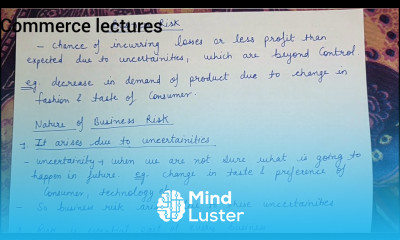 Commerce lectures
Risk
- Chance of incurring losses or less profit than
expected due to uncertainities, which are beyond control.
eg. decrease in demand of product due to change in
fashion & taste of Consumer.
Nature of Business Risk
1. It arises due to uncertainities
- uncertainity → when we are not sure what is going to
happen in future. eg. change in taste & preference of
Consumer, technology
- So business risk
uncertainities
Mind
Luster